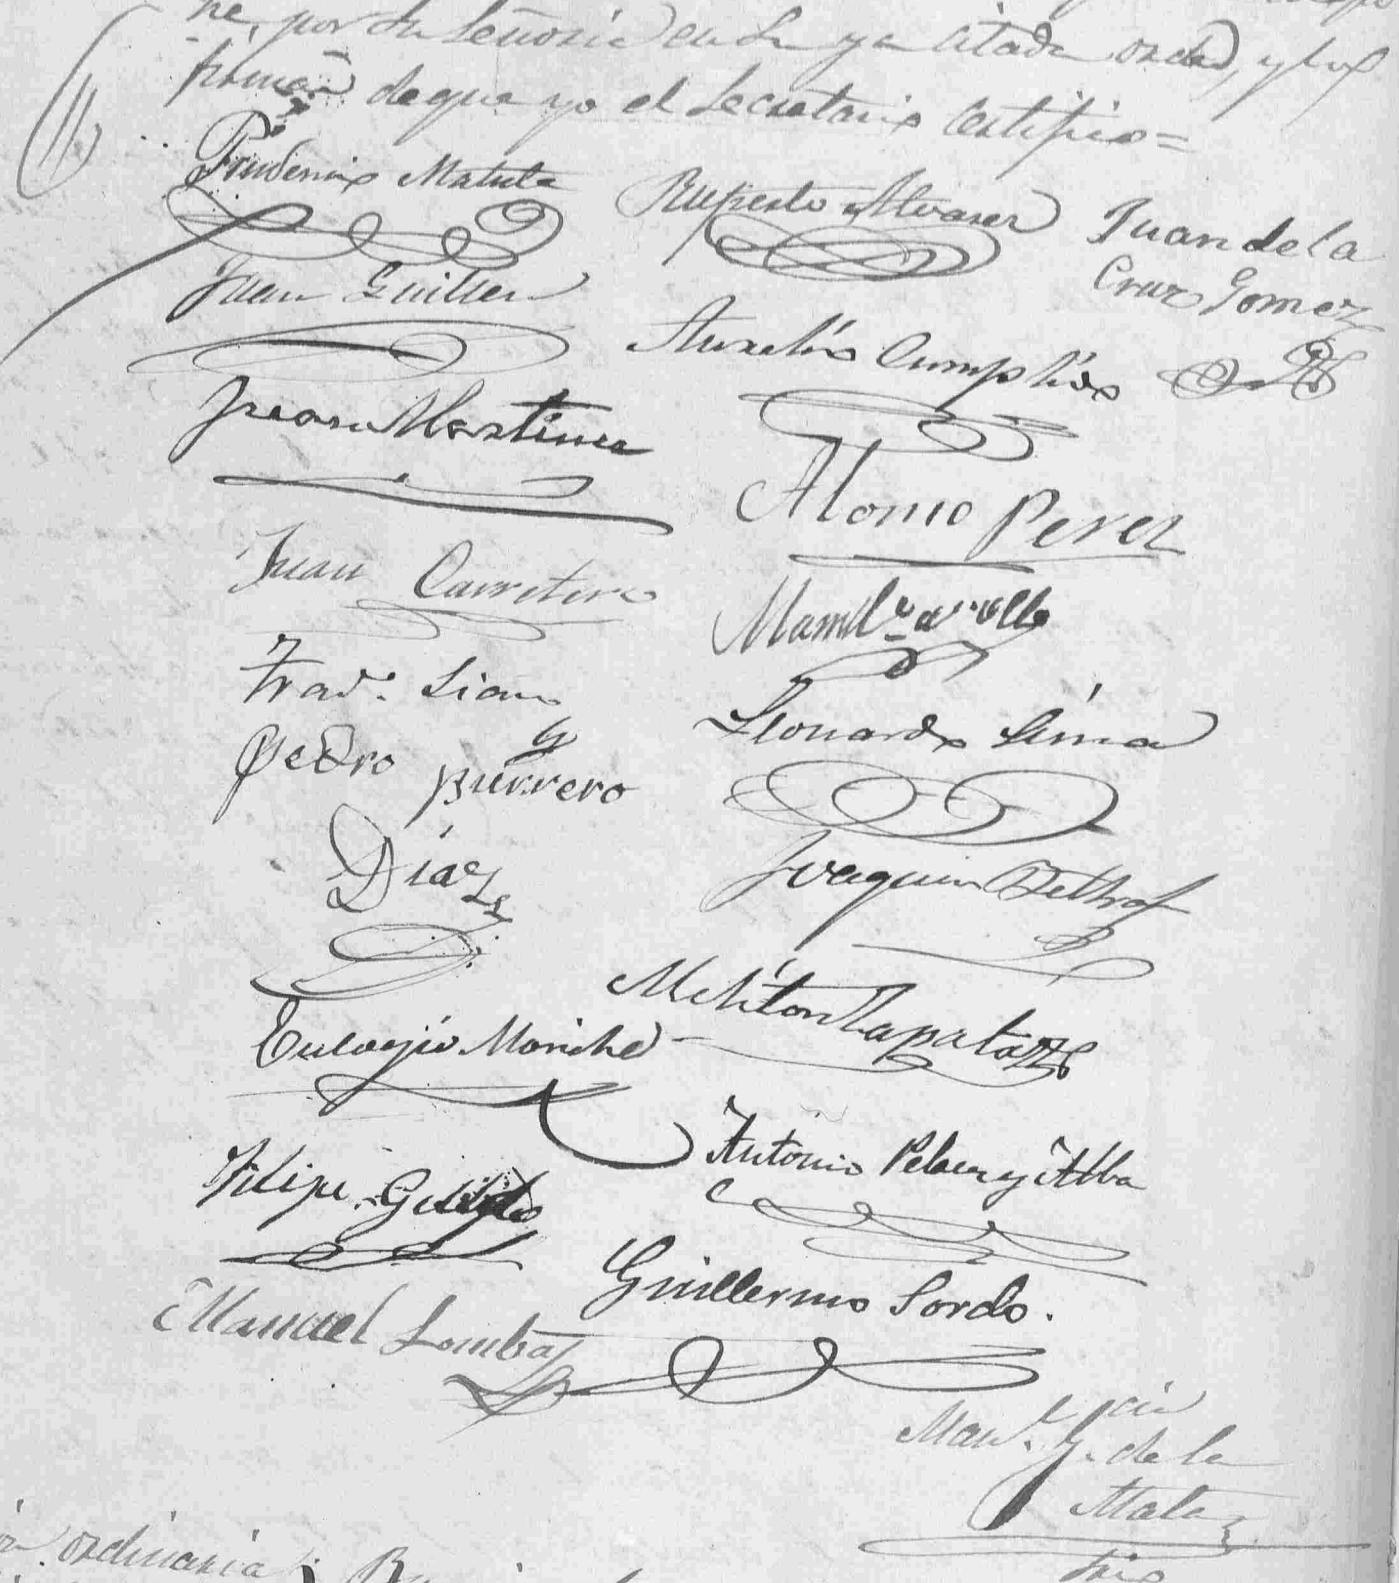 ne, por Su Señoria en la ya citada orden, y los
firman de que yo el Secretario Certifico=
Prudencio Matute
Ruperto Alvarez
Juan de la
Cruz Gomez
Juan Guillen
Aurelio Cumplido
Juan Martinez
Alonso Perez
Juan Carretero
Man.l
Fran.co Lian
Leonardo Lima
Pedro Burrero
y
Diaz
Joaquin
Meliton Zapata
Eulogio Moriche
Antonio Pelaez y Alba
Felipe
Guillermo Sordo.
Manuel Lomba
Man.l G.cia de la
Mata
Srio
ordinaria